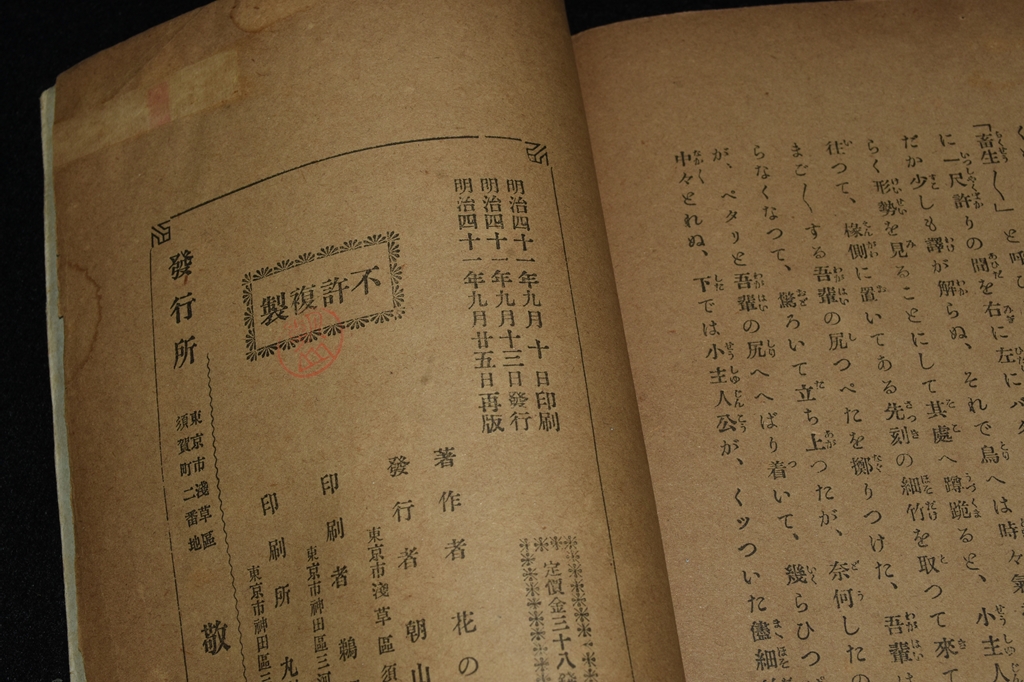 「畜生〱」と呼び
に一尺許りの間を右に左にバタ
だか少しも譯が解らぬ、それで鳥へは時々氣
らく形勢を見ることにして其處へ蹲跪ると、小主人
往つて、椽側に置いてある先刻の細竹を取つて來て
まご〱する吾輩の尻しつぺたを擲りつけた、吾輩は
らなくなつて、驚ろいて立ち上つたが、奈何したの
が、ペタリと吾輩の尻へへばり着いて、幾らひつ
中々とれぬ、下では小主人公が、くッついた儘細
明治四十一年九月十日印刷
明治四十一年九月十三日發行
明治四十一年九月廿五日再版
定價金三十八錢
不許複製
著作者 花の
發行者 朝山
東京市淺草區須
印刷者 鵜
東京市神田區三河
印刷所 丸
東京市神田區三
發行所
東京市淺草區
須賀町二番地
敬